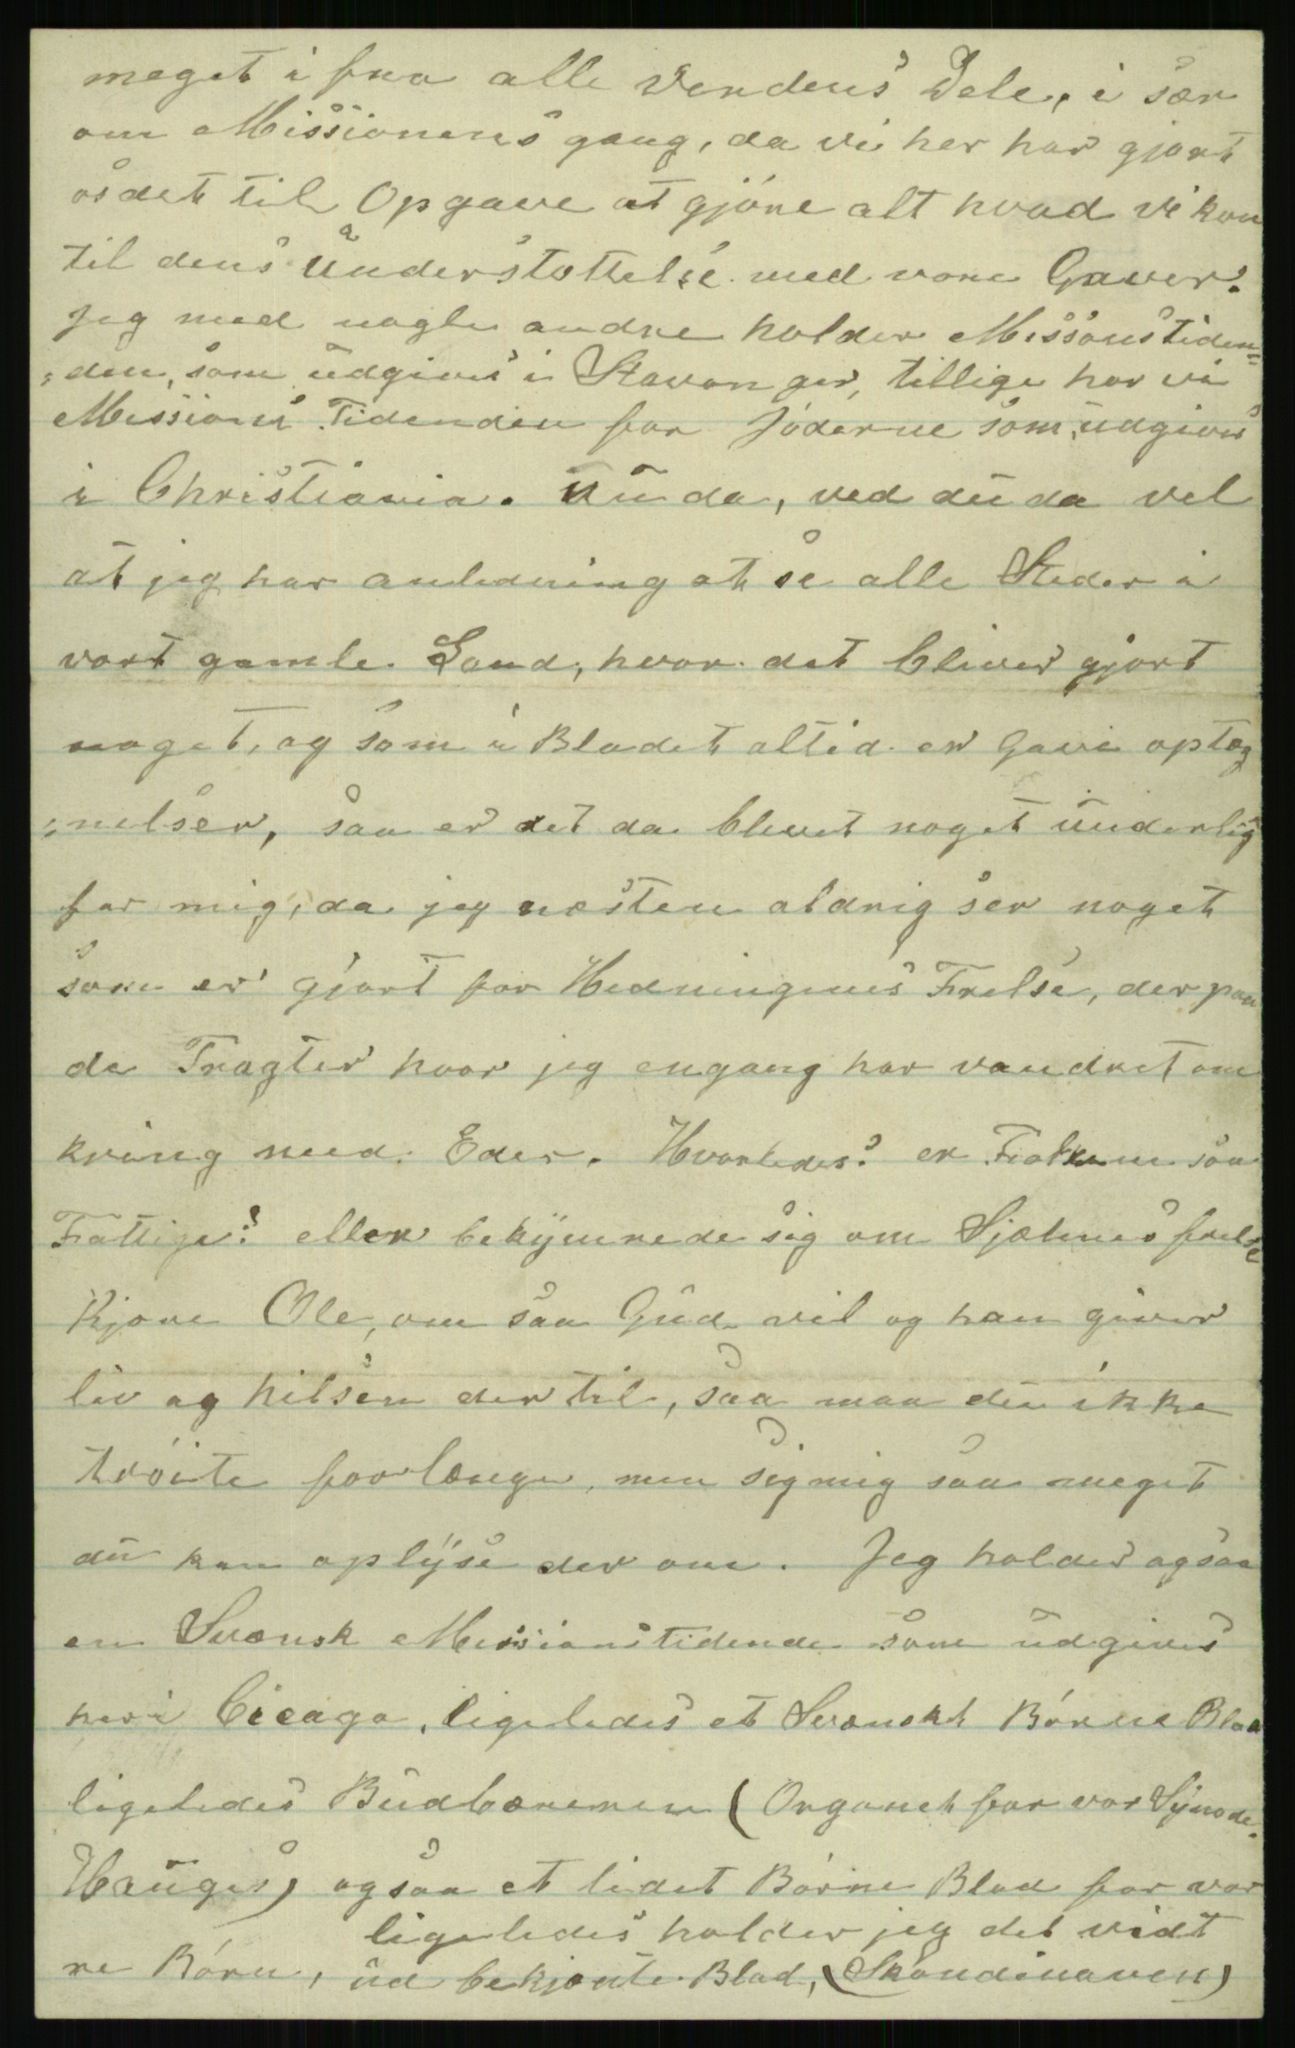 meget i fra alle Verdens Dele, i sær
om Missionens gang, da vi her har gjort
os det til Opgave at gjöre alt hvad vi kan
til dens Understøttelse med vore Gaver.
Jeg med nogle andre holder Missonstiden=
=den, som udgives i Stavanger, tillige har vi
Missions Tidenden for Jøderne som udgives
i Christiania. Nu da, ved du da vel
at jeg har anledning at se alle Steder i
vort gamle Land, hvor det bliver gjort
noget, og som i Bladet altid er Gave optæg
=nelser, saa er det da blevet noget underlig
for mig, da jeg næsten aldrig ser noget
som er gjort for Hedningenes Frelse, der paa
de Tragter hvor jeg engang har vandret om
kring med Eder. Hvorledes? er Folkene saa
Fattige? eller bekymrede sig om Sjælenes frelse
Kjære Ole, om saa Gud vil og han giver
liv og hilsen der til, saa maa du ikke
tvöite for længe, men sig mig saa meget
du kan oplyse der om. Jeg holder ogsaa
en Svensk Missionstidende som udgives
her i Cicago, ligeledes et Svenskt Börne Blad
ligeledes Budbæreren (Organet for vor Synode.
Hauges) ogsaa et lidet Börne Blad for vor
re Börn, ligeledes holder jeg det vidt
ud bekjente Blad, (Skandinaven)